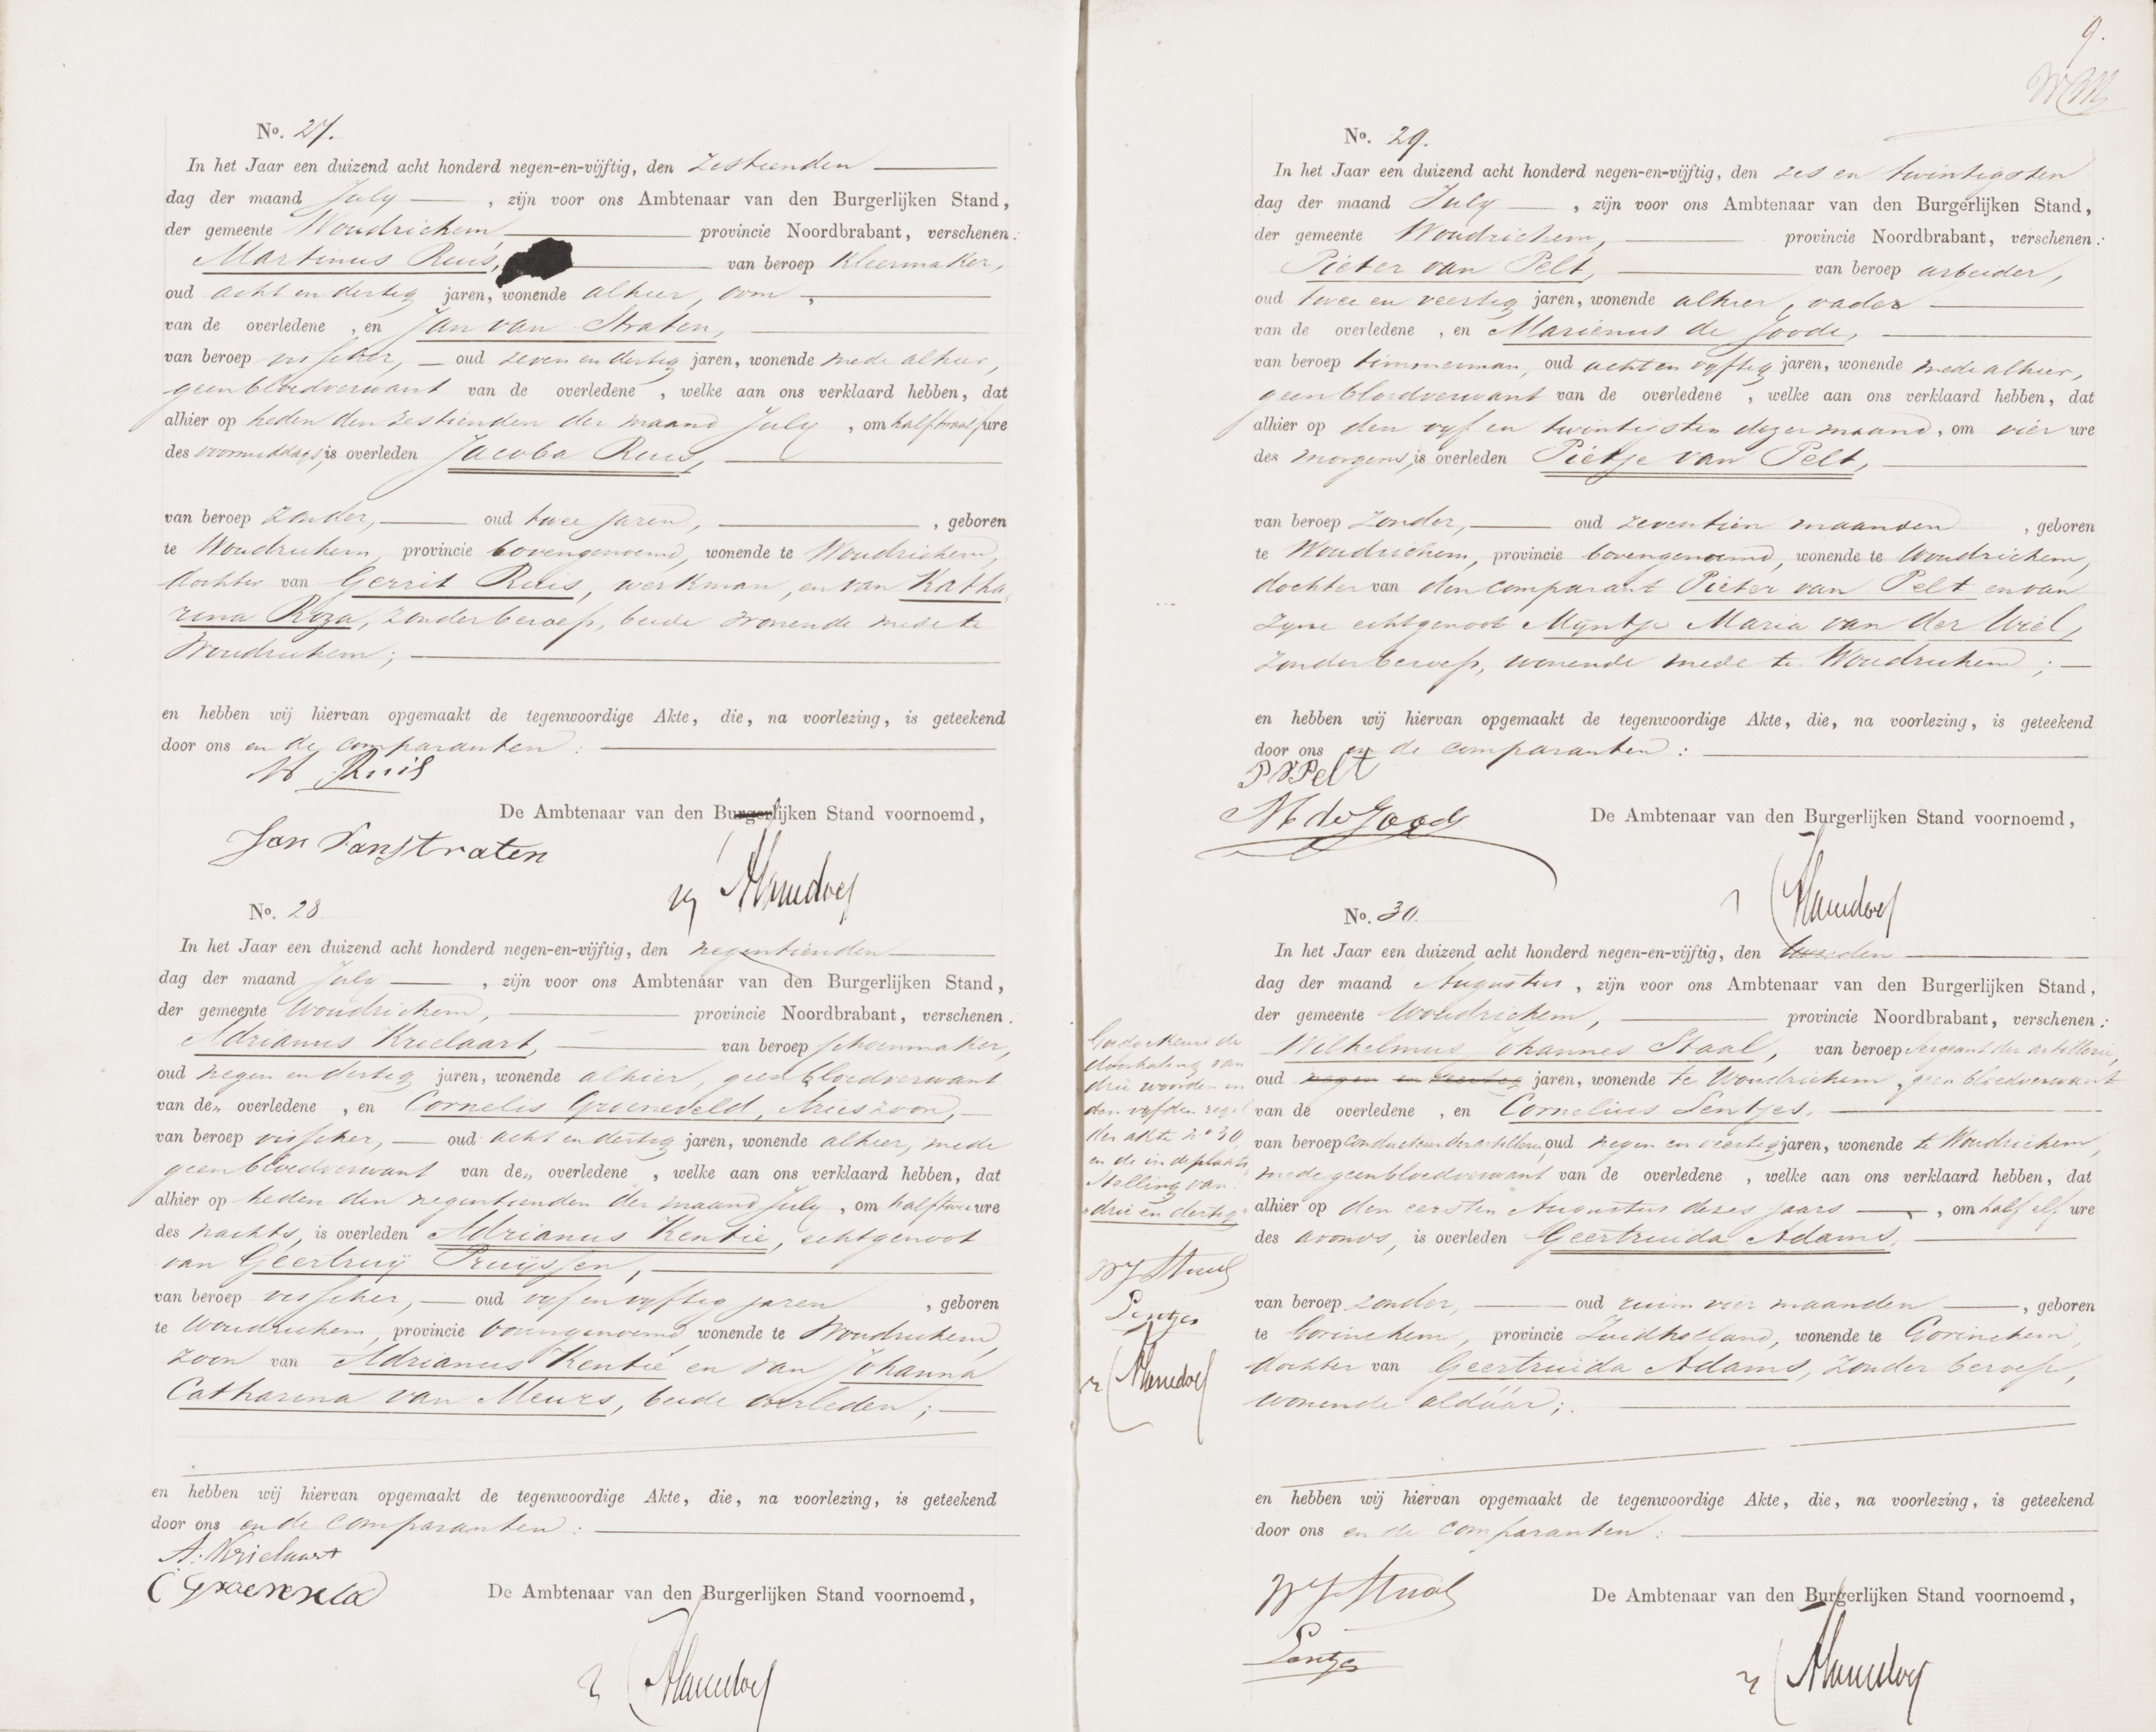 No. 27.
In het Jaar een duizend acht honderd negen-en-vijftig, den zestienden
dag der maand July, zijn voor ons Ambtenaar van den Burgerlijken Stand,
der gemeente Woudrichem provincie Noordbrabant, verschenen:
Martinus Ruis, van beroep kleermaker,
oud acht en dertig jaren, wonende alhier, oom,
van de overledene, en Jan van Straten,
van beroep visscher, oud zeven en dertig jaren, wonende mede alhier,
geen bloedverwant van de overledene, welke aan ons verklaard hebben, dat
alhier op heden den zestienden der maand July, om half twaalf ure
des voormiddags, is overleden Jacoba Ruis,
van beroep zonder, oud twee jaren, geboren
te Woudrichem, provincie bovengenoemd, wonende te Woudrichem,
dochter van Gerrit Ruis, werkman, en van Katha
rina Roza, zonder beroep, beide wonende mede te
Woudrichem;
en hebben wij hiervan opgemaakt de tegenwoordige Akte, die, na voorlezing, is geteekend
door ons en de comparanten:
M Ruis
De Ambtenaar van den Burgerlijken Stand voornoemd,
Jan Vanstraten
No. 28.
In het Jaar een duizend acht honderd negen-en-vijftig, den negentienden
dag der maand July, zijn voor ons Ambtenaar van den Burgerlijken Stand,
der gemeente Woudrichem, provincie Noordbrabant, verschenen:
Adrianus Krielaart, van beroep schoenmaker,
oud negen en dertig jaren, wonende alhier, geen bloedverwant
van den overledene, en Cornelis Groeneveld, Arieszoon,
van beroep visscher, oud acht en dertig jaren, wonende alhier, mede
geen bloedverwant van den overledene, welke aan ons verklaard hebben, dat
alhier op heden den negentienden der maand July, om half twee ure
des nachts, is overleden Adrianus Kentie, echtgenoot
van Geertruij Pruijssen,
van beroep visscher, oud vyf en vyftig jaren, geboren
te Woudrichem, provincie bovengenoemd, wonende te Woudrichem,
zoon van Adrianus Kentie en van Johanna
Catharina van Meurs, beide overleden;
en hebben wij hiervan opgemaakt de tegenwoordige Akte, die, na voorlezing, is geteekend
door ons en de comparanten:
A. Krielaart
C Groeneveld
De Ambtenaar van den Burgerlijken Stand voornoemd,
9.
No. 29.
In het Jaar een duizend acht honderd negen-en-vijftig, den zes en twintigsten
dag der maand July, zijn voor ons Ambtenaar van den Burgerlijken Stand,
der gemeente Woudrichem, provincie Noordbrabant, verschenen:
Pieter van Pelt, van beroep arbeider,
oud twee en veertig jaren, wonende alhier, vader
van de overledene, en Marienus de Joode,
van beroep timmerman, oud acht en vyftig jaren, wonende mede alhier,
geen bloedverwant van de overledene, welke aan ons verklaard hebben, dat
alhier op den vyf en twintigsten dezer maand, om vier ure
des morgens, is overleden Pietje van Pelt,
van beroep zonder, oud zeventien maanden, geboren
te Woudrichem, provincie bovengenoemd, wonende te Woudrichem,
dochter van den comparant Pieter van Pelt en van
zyne echtgenoot Myntje Maria van der Wiel,
zonder beroep, wonende mede te Woudrichem;
en hebben wij hiervan opgemaakt de tegenwoordige Akte, die, na voorlezing, is geteekend
door ons en de comparanten:
P V Pelt
M de Joode
De Ambtenaar van den Burgerlijken Stand voornoemd,
No. 30.
In het Jaar een duizend acht honderd negen-en-vijftig, den tweeden
dag der maand Augustus, zijn voor ons Ambtenaar van den Burgerlijken Stand,
der gemeente Woudrichem, provincie Noordbrabant, verschenen:
Wilhelmus Johannes Staal, van beroep sergeant der artillerie,
oud negen en veertig jaren, wonende te Woudrichem, geen bloedverwant
van de overledene, en Cornelius Lentjes,
van beroep conducteur der artillerie, oud negen en veertig jaren, wonende te Woudrichem,
mede geen bloedverwant van de overledene, welke aan ons verklaard hebben, dat
alhier op den eersten Augustus dezes jaars, om half elf ure
des avonds, is overleden Geertruida Adams,
van beroep zonder, oud ruim vier maanden, geboren
te Gorinchem, provincie Zuidholland, wonende te Gorinchem,
dochter van Geertruida Adams, zonder beroep,
wonende aldáár;
en hebben wij hiervan opgemaakt de tegenwoordige Akte, die, na voorlezing, is geteekend
door ons en de comparanten:
W J Staal
Lentjes
De Ambtenaar van den Burgerlijken Stand voornoemd,
Goedgekeurd de
doorhaling van
drie woorden in
den vyfden regel
der akte no 30
en de in de plaats
stelling van
"drie en dertig"
W J Staal
Lentjes